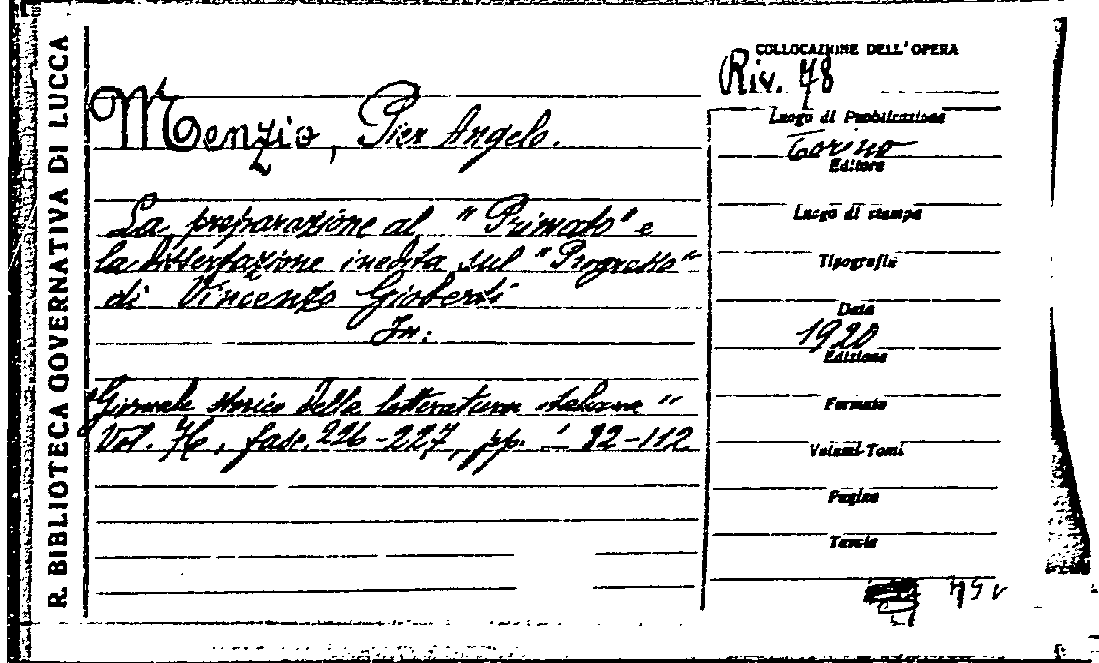 R. BIBLIOTECA GOVERNATIVA DI LUCCA
Menzio, Pier Angelo.
La preparazione al "Primato" e
la dissertazione inedita sul "Progresso"
di Vincenzo Gioberti
In:
"Giornale storico della letteratura italiana"
Vol. 76, fasc. 226-227, pp. 82-112
COLLOCAZIONE DELL'OPERA
Riv. 78
Luogo di Pubblicazione
Torino
Editore
Luogo di stampa
Tipografia
Data
1920
Edizione
Formato
Volumi-Tomi
Pagine
Tavole